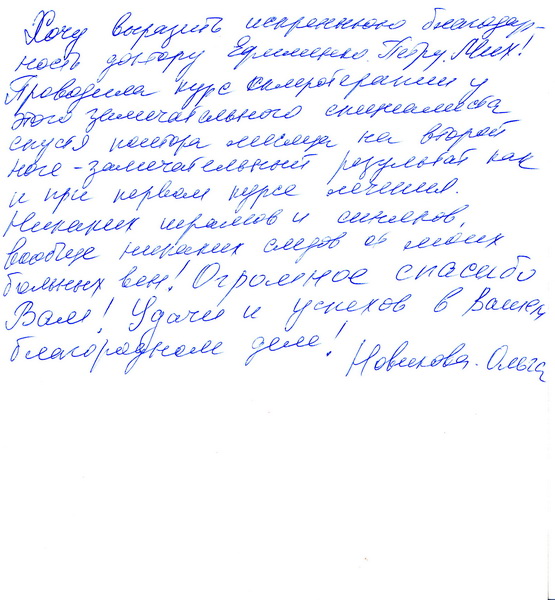 Хочу выразить искреннюю благодар-
ность доктору Ефименко Петру Мих!
Проводила курс склеротерапии у
этого замечательного специалиста
спустя полтора месяца на второй
ноге - замечательный результат как
и при первом курсе лечения.
Никаких шрамов и синяков,
вообще никаких следов от моих
больных вен! Огромное спасибо
Вам! Удачи и успехов в Вашем
благородном деле!
Новикова Ольга